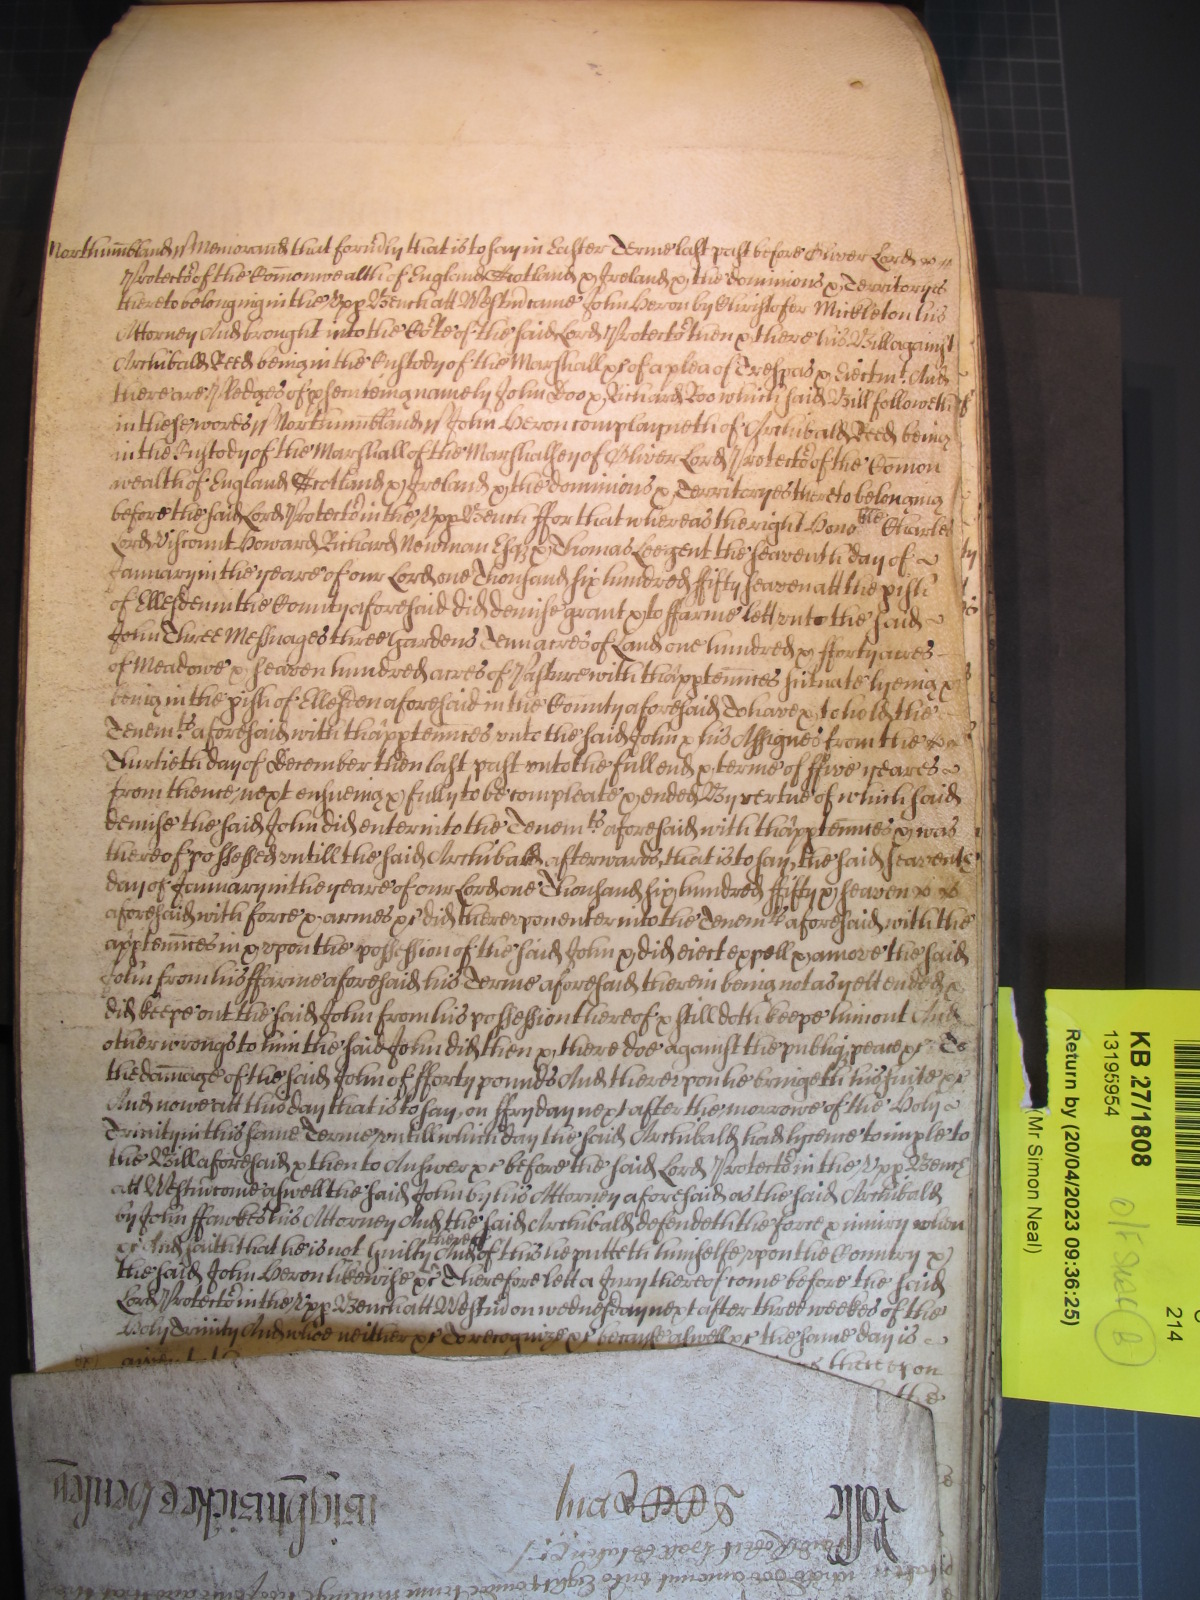 Northumbland// Memorand that formrly that is to say in Easter Terme last past before Oliver Lord
Protector of the Comonwealth of England Scotland & Ireland & the dominions & Territoryes
thereto belonging in the Upp Bench att Westm came John Heron by Christofer Mickleton his
Attorney And brought into the Co'te of the said Lord Protector then & there his Bill against
Archibald Reed being in the Custody of the Marshall &c of a plea of Trespas & Eiectmt And
there are Pledges of p'secuteing namely John Doo & Richard Roo which said Bill followeth
in these words// Northumbland// John Heron complayneth of Archibald Reed being
in the Custody of the Marshall of the Marshalsey of Oliver Lord Protector of the Comon
wealth of England Scotland & Ireland & the dominions & Territoryes thereto belonging
before the said Lord Protector in the Upp Bench ffor that whereas the right Honoble Charles
Lord Viscount Howard Richard Newman Esqr & Thomas Leegent the seaventh day of
January in the yeare of our Lord one Thousand six hundred ffifty seaven att the pish
of Ellesden in the County aforesaid did demise grant & to ffarme lett unto the said
John Three Messuages three Gardens Tenn acres of Land one hundred & fforty acres
of Meadowe & seaven hundred acres of Pasture with th'apptennces situate lyeing &
being in the pish of Ellesden aforesaid in the County aforesaid To have & to hold the
Tenemts aforesaid with th'apptennces unto the said John & his Assignes from the
Thirtieth day of December then last past unto the full end & terme of ffive yeares
from thence next ensueing & fully to be compleate & ended By vertue of which said
demise the said John did enter into the Tenemts aforesaid with th'apptennces & was
thereof possessed untill the said Archibald afterwards, that is to say, the said seaventh
day of January in the yeare of our Lord one Thousand six hundred ffifty & seaven
aforesaid with force & armes &c did thereupon enter into the Tenemts aforesaid with the
apptennces in & upon the possession of the said John & did eiect expell & amove the said
John from his ffarme aforesaid his Terme aforesaid therein being not as yett ended &
did keepe out the said John from his possession thereof & still doth keepe him out And
other wrongs to him the said John did then & there doe against the publiq peace &c To
the damage of the said John of fforty pounds And thereupon he bringeth his suite &c
And nowe att this day that is to say, on ffryday next after the morrowe of the Holy
Trinity in this same Terme untill which day the said Archibald had lycence to imple to
the Bill aforesaid & then to Answer &c before the said Lord Protector in the Upp Bench
att Westm come aswell the said John by his Attorney aforesaid as the said Archibald
by John ffawkes his Attorney And the said Archibald defendeth the force & iniury when
&c And saith that he is not Guilty thereof And of this he putteth himselfe upon the Country &
the said John Heron likewise &c Therefore lett a Jury thereof come before the said
Lord Protector in the Upp Bench att Westm on wednesday next after three weekes of the
Holy Trinity And whoe neither &c To recognize &c because aswell &c the same day is
thereon
the
KB 27/1808
13195954
Return by (20/04/2023 09:36:25)
(Mr Simon Neal)
214